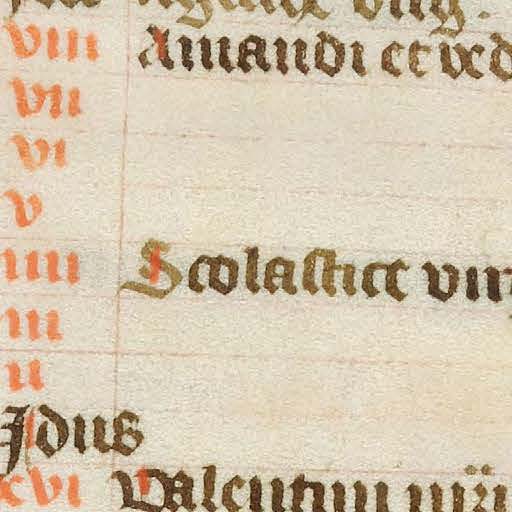 viii Amandi et ved
vii
vi
v
iiii Scolastice virg
iii
ii
Jdus
xvi Valentini mr̄i